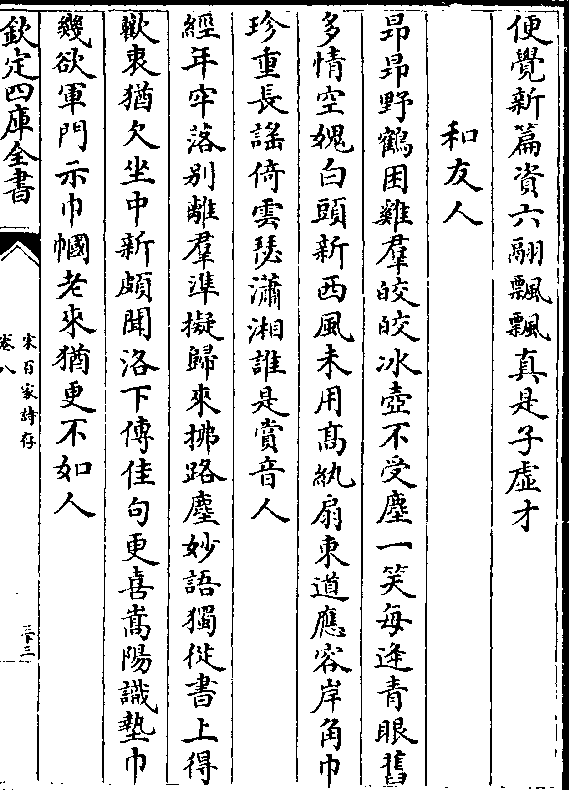 便覺新篇資六翮飄飄真是子虛才
和友人
昂昂野鶴困雞羣皎皎冰壺不受塵一笑每逢青眼舊
多情空媿白頭新西風未用髙紈扇東道應容岸角巾
珍重長謡倚雲瑟瀟湘誰是賞音人
經年牢落别離羣準擬歸來拂路塵妙語獨從書上得
歡衷猶欠坐中新頗聞洛下傳佳句更喜嵩陽識墊巾
幾欲軍門示巾幗老來猶更不如人
欽定四庫全書
宋百家詩存
卷八